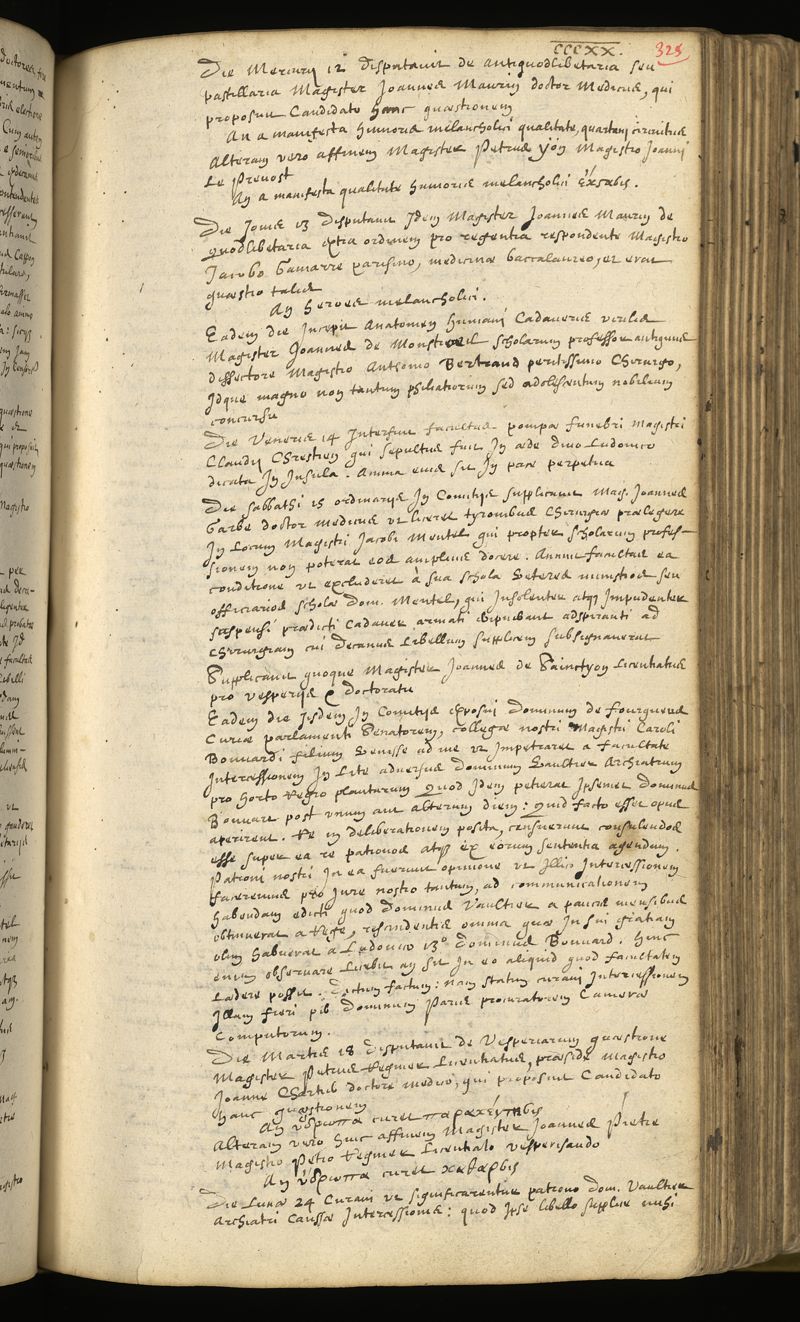 CCCXX. 323
Die Mercurij 12 disputavit de antiquodlibetaria seu
pastillaria Magister Joannes Maurin doctor Medicus, qui
proposuit Candidato hanc quæstionem
An a manifesta humoris melancholici qualitate, quartani circuitus
Alteram vero affinem Magister Petrus Yon Magistro Joanni
Le Prevost
An a manifesta qualitate humoris melancholici
Die Jovis 13 disputavit Idem Magister Joannes Maurin de
Quodlibetaria extra ordinem pro regentia respondente Magistro
Jacobo Gamarre parisino, medicinæ baccalaureo, et erat
quæstio talis
An heroes melancholici.
Eadem die Incepit Anatomen humani Cadaveris virilis
Magister Joannes de Monstreuil scholarum professor antiquus
dissectore Magistro Antonio Bertrand peritissimo Chirurgo,
Idque magno non tantum philiatrorum sed adolescentum nobilium
concursu
Die Veneris 14 Interfuit facultas pompæ funebri Magistri
Claudij Chrestien qui sepultus fuit In æde divo Ludovico
dicata In Insula. Anima eius sit In pace perpetua
Die sabbathi 15 ordinarijs In Comitijs supplicavit Mag. Joannes
Garbe doctor Medicus ut liceret tyronibus Chirurgiæ prælegere
In Locum Magistri Jacobi Mentel qui propter scholarum profes-
sionem non poterat eos amplius docere. Annuit facultas ea
conditione ut excluderet à sua schola Veteres ministros seu
officiarios scholæ dom. Mentel, qui Insolenter atq3 Impudenter
suspensi prædicti Cadaver armati adspiranti ad
Chirurgiam cui decanus Libellum supplicem subsignaverat
Supplicavit quoque Magister Joannes de Sainctyon Licentiatus
pro vesperijs & doctoratu
Eadem die Jisdem In Comitijs exposui dominum de fourqueux
Curiæ parlamenti Senatorem, collegæ nostri Magistri Caroli
Bouvardi filium Venisse ad me ut Impetraret a facultate
Intercessionem In Lite adversus dominum Vaultier Archiatrum
pro horto Regio plantarum Quod Idem petierat Ipsemet dominus
Bouvart post unum aut alterum diem: Quid facto esset opus
aperirent. Re in deliberationem posita, censuerunt consulendos
esse super ea re patronos atq3 ex eorum sententia agendum.
Patroni nostri In ea fuerunt opinione ut Illis Intercessionem
faceremus pro Jure nostro tantum, ad communicationem
habendam edicti quod dominus Vaultier a paucis mensibus
obtinuerat a Rege, rescindentis omnia quæ In sui gratiam
olim habuerat a Ludovico 13º dominus Bouvard. hinc
enim observare Licebit an sit In eo aliquid quod facultatem
Lædere possit. dictum factum: nam statim curavi Intercessionem
Illam fieri per dominum Paris procuratorem Cameræ
Computorum.
Die Martis 18 disputavit de Vesperiarum quæstione
Magister Petrus Regnier Licentiatus, præside Magistro
Joanne Chartier doctore medico, qui proposuit Candidato
hanc quæstionem
An ὕδρωπα curet παρακέντησις
Alteram vero huic affinem Magister Joannes Pietre
Magistro Petro Regnier Licentiato vesperisando
An ὕδρωπα curet κάθαρσις
Die Lunæ 24 Curavi ut significarentur patrono dom. Vaultier
Archiatri Caussæ Intercessionis: quod Ipse libello supplice mihi